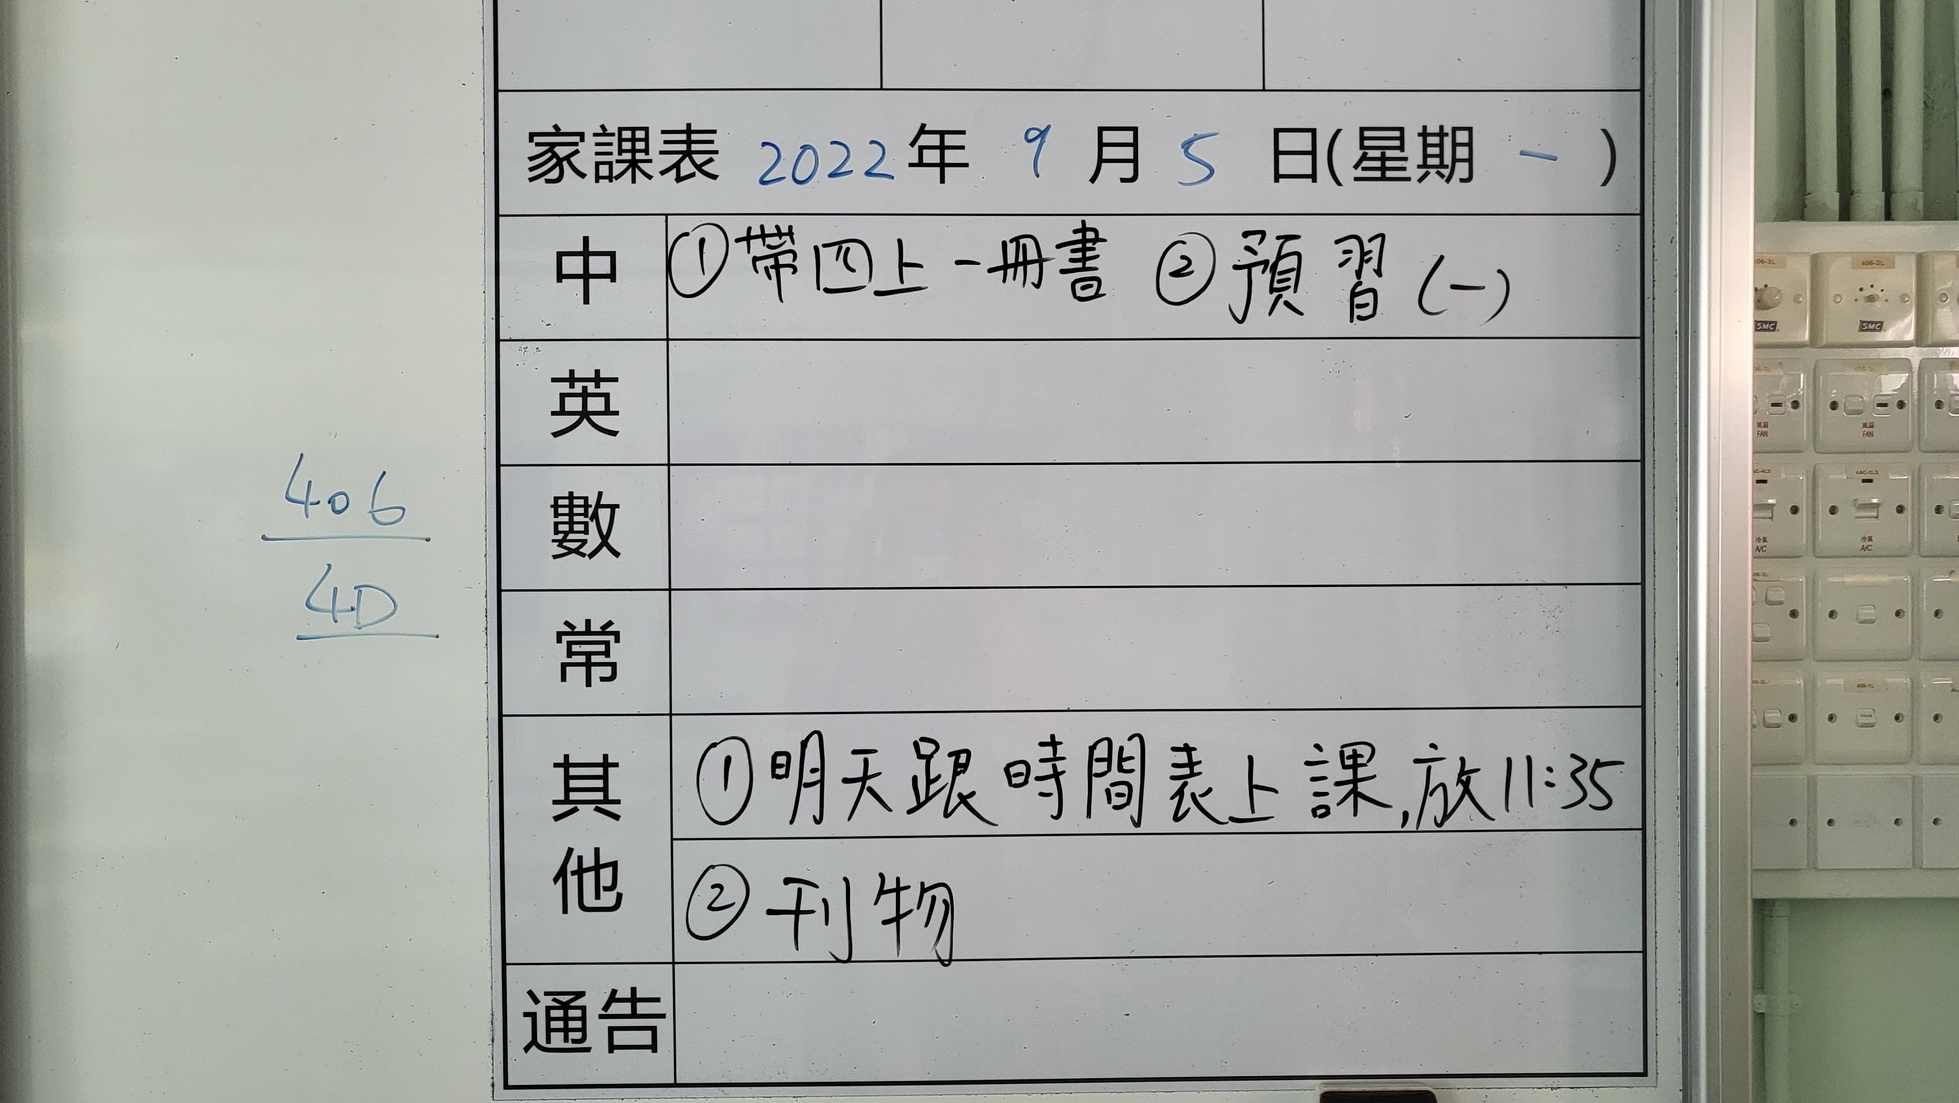 家課表 2022年 9月5日(星期一)
中 ①帶四上一冊書 ②預習(一)
英
數
常
其他 ①明天跟時間表上課,放11:35
②刊物
通告
406
4D
SMC
SMC
風扇
FAN
風扇
FAN
冷氣
A/C
冷氣
A/C